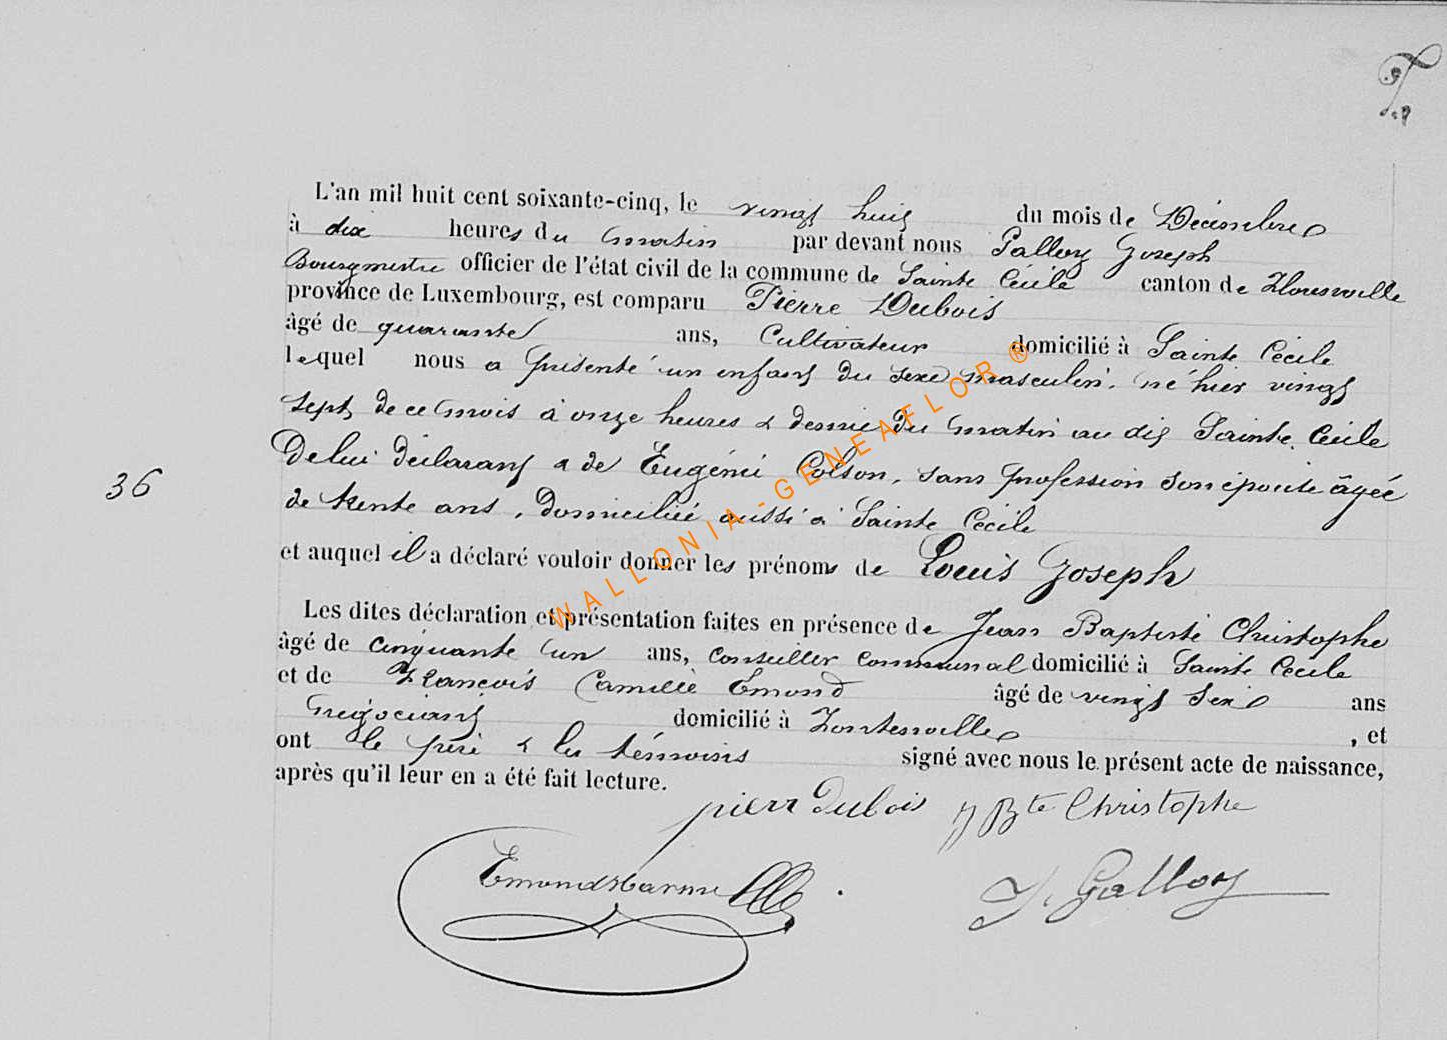 L'an mil huit cent soixante-cinq, le vingt huit du mois de Décembre
à dix heures du matin par devant nous Galloy Joseph
Bourgmestre officier de l'état civil de la commune de Sainte Cécile canton de Florenville
province de Luxembourg, est comparu Pierre Dubois
âgé de quarante ans, Cultivateur domicilié à Sainte Cécile
lequel nous a présenté un enfant du sexe masculin, né hier vingt
sept de ce mois à onze heures & demie du matin au dit Sainte Cécile
De lui déclarant & de Eugénie Colson, sans profession son épouse âgée
36
de trente ans, domiciliée aussi à Sainte Cécile
et auquel il a déclaré vouloir donner les prénoms de Louis Joseph
Les dites déclaration et présentation faites en présence de Jean Baptiste Christophe
âgé de cinquante un ans, conseiller communal domicilié à Sainte Cécile
et de François Camille Emond âgé de vingt six ans
négociant domicilié à Fontenoille, et
ont le père & les témoins signé avec nous le présent acte de naissance,
après qu'il leur en a été fait lecture.
pierr Dubois JBte Christophe
Emond J. Galloy
WALLONIA-GENEAFLOR®